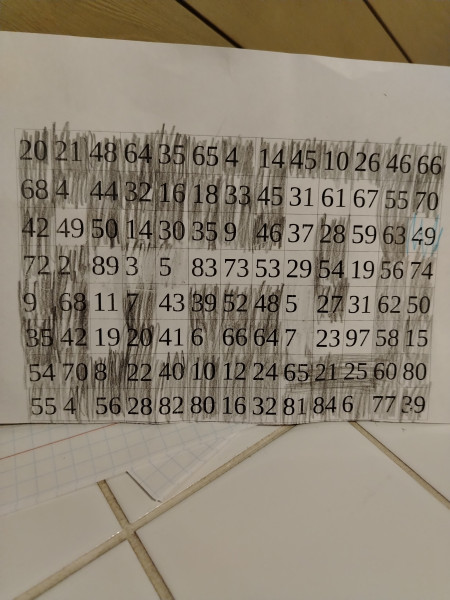 20 21 48 64 35 65 4 14 45 10 26 46 66
68 4 44 32 16 18 33 45 31 61 67 55 70
42 49 50 14 30 35 9 46 37 28 59 63 49
72 2 89 3 5 83 73 53 29 54 19 56 74
9 68 11 7 43 39 52 48 5 27 31 62 50
35 42 19 20 41 6 66 64 7 23 97 58 15
54 70 8 22 40 10 12 24 65 21 25 60 80
55 4 56 28 82 80 16 32 81 84 6 77 39